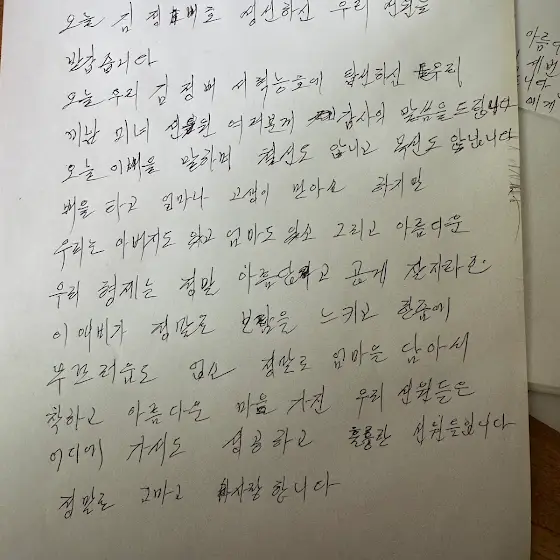 오늘 김정배호 승선하신 우리 선원을
반갑습니다
오늘 우리 김정배 서력능호에 탑선하신 우리
미남 미녀 선원 여러분께 감사의 말씀을드립니다
오늘 이배을 말하며 철선도 않니고 목선도 않닙니다
배을 타고 얼마나 고생이 많아소 하지만
우리는 아버지도 있고 엄마도 있소 그리고 아름다운
우리 형제는 정말 아름답고 곱게 잔자라준
이 애비가 정말로 보람을 느키고 한줌에
부끄러움도 업소 정말로 엄마을 담아서
착하고 아름다운 마음 가진 우리 선원들은
어디에 가서도 성공하고 훌륭한 선원들입니다
정말로 고마고 사랑합니다
아름